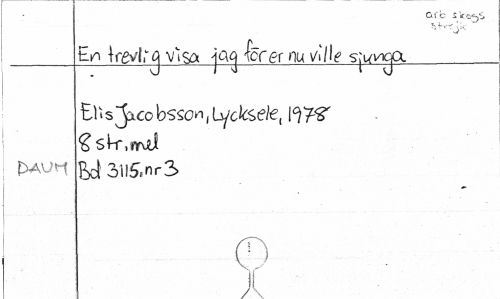 arb skogs
strejk
En trevlig visa jag för er nu ville sjunga
Elis Jacobsson, Lycksele, 1978
8 str, mel
DAUM Bd 3115, nr 3